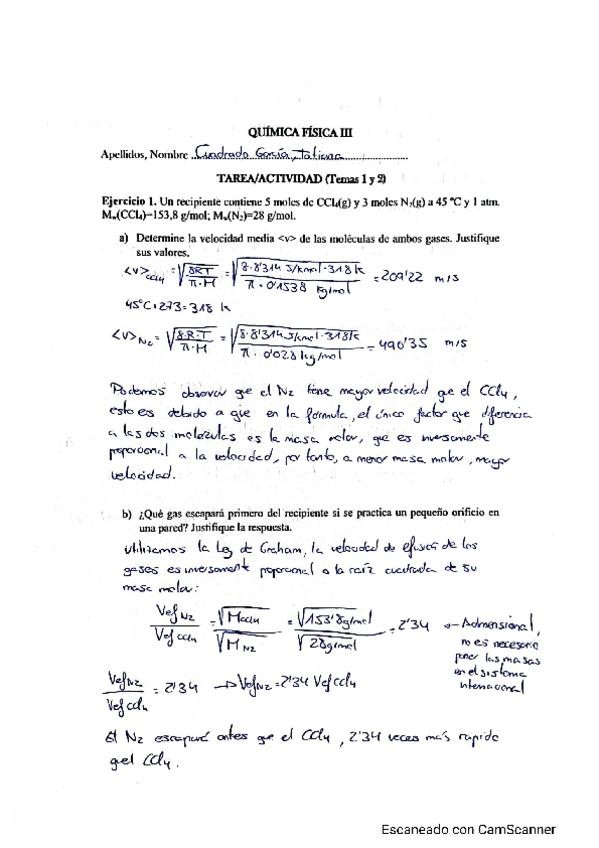 QUÍMICA FÍSICA III
Apellidos, Nombre Cuadrado García, Tatiana
TAREA/ACTIVIDAD (Temas 1 y 2)
Ejercicio 1. Un recipiente contiene 5 moles de CCl₄(g) y 3 moles N₂(g) a 45 ºC y 1 atm.
Mw(CCl₄)=153,8 g/mol; Mw(N₂)=28 g/mol.
a) Determine la velocidad media <v> de las moléculas de ambos gases. Justifique
sus valores.
<v>CCl4 = √(8RT / π·M) = √(8·8'314 J/kmol·318 k / π·0'1538 kg/mol) = 209'22 m/s
45ºC+273=318 k
<v>N2 = √(8·R·T / π·M) = √(8·8'314 J/kmol·318k / π·0'028 kg/mol) = 490'35 m/s
Podemos observar que el N2 tiene mayor velocidad que el CCl4,
esto es debido a que en la fórmula, el único factor que diferencia
a las dos moléculas es la masa molar, que es inversamente
proporcional a la velocidad, por tanto, a menor masa molar, mayor
velocidad.
b) ¿Qué gas escapará primero del recipiente si se practica un pequeño orificio en
una pared? Justifique la respuesta.
Utilizamos la Ley de Graham, la velocidad de efusión de los
gases es inversamente poporcional a la raíz cuadrada de su
masa molar:
Vef N2 / Vef CCl4 = √MCCl4 / √MN2 = √153'8g/mol / √28g/mol = 2'34 → Adimensional,
no es necesario
poner las masas
en el sistema
internacional
Vef N2 / Vef CCl4 = 2'34 → Vef N2 = 2'34 Vef CCl4
El N2 escapará antes que el CCl4, 2'34 veces más rápido
que el CCl4.
Escaneado con CamScanner